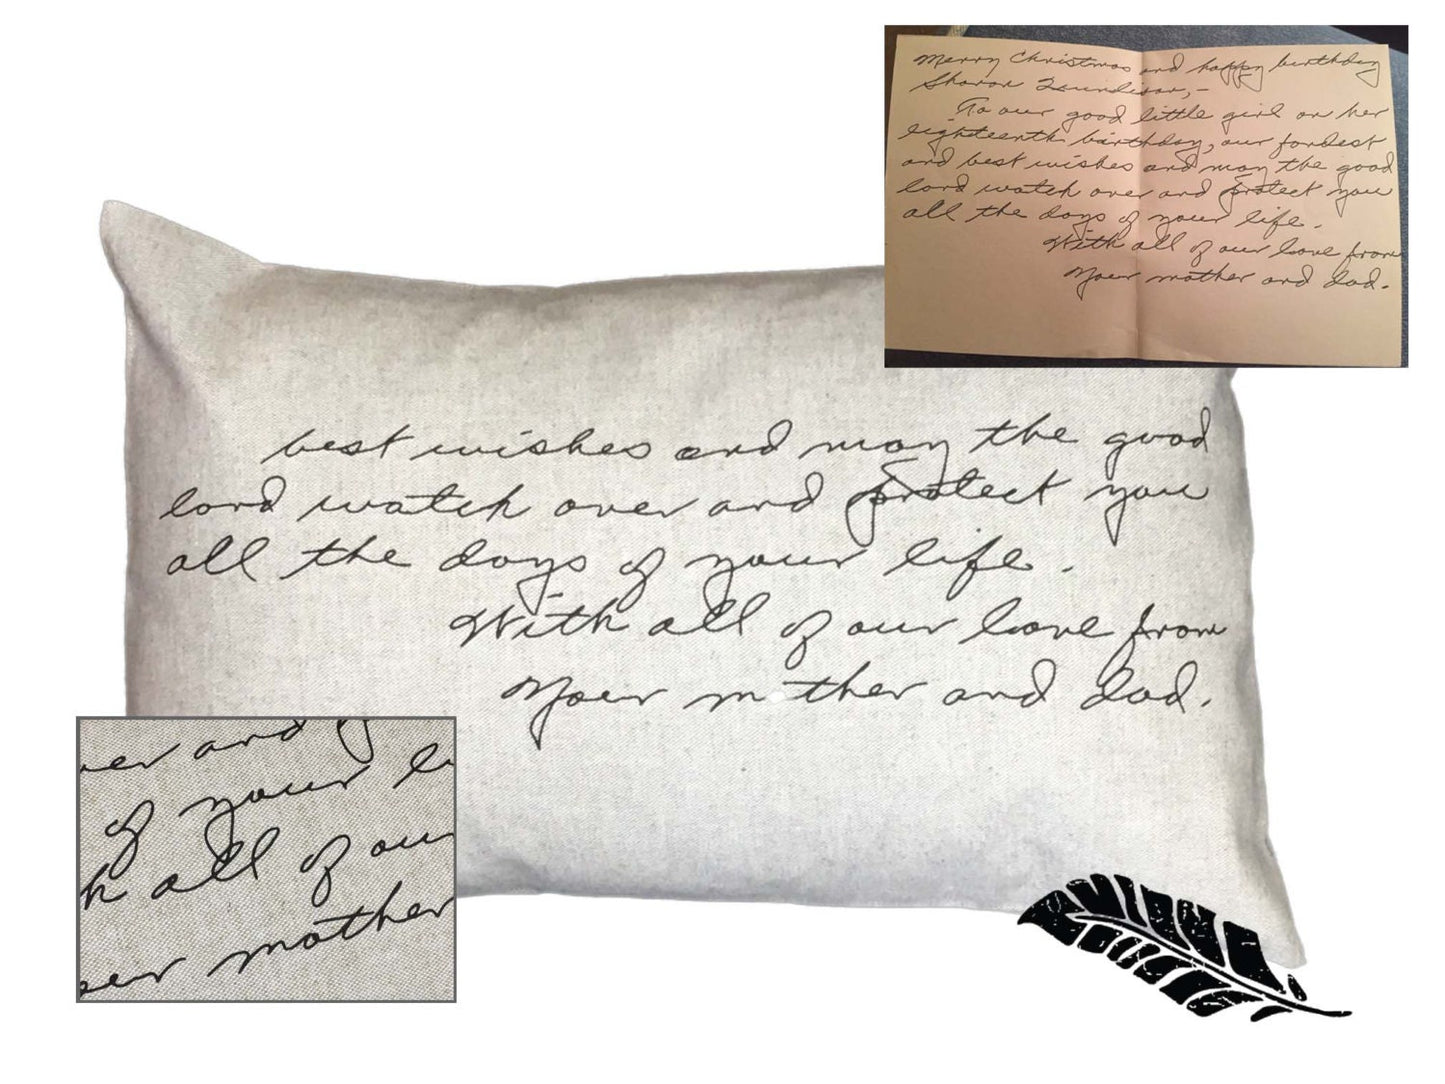 Merry Christmas and happy birthday
Sharon
To our good little girl on her
eighteenth birthday, our fondest
and best wishes and may the good
lord watch over and protect you
all the days of your life.
With all of our love from
Your mother and dad.
best wishes and may the good
lord watch over and protect you
all the days of your life.
With all of our love from
Your m ther and dad.
er and
of your li
h all of our
ur mother